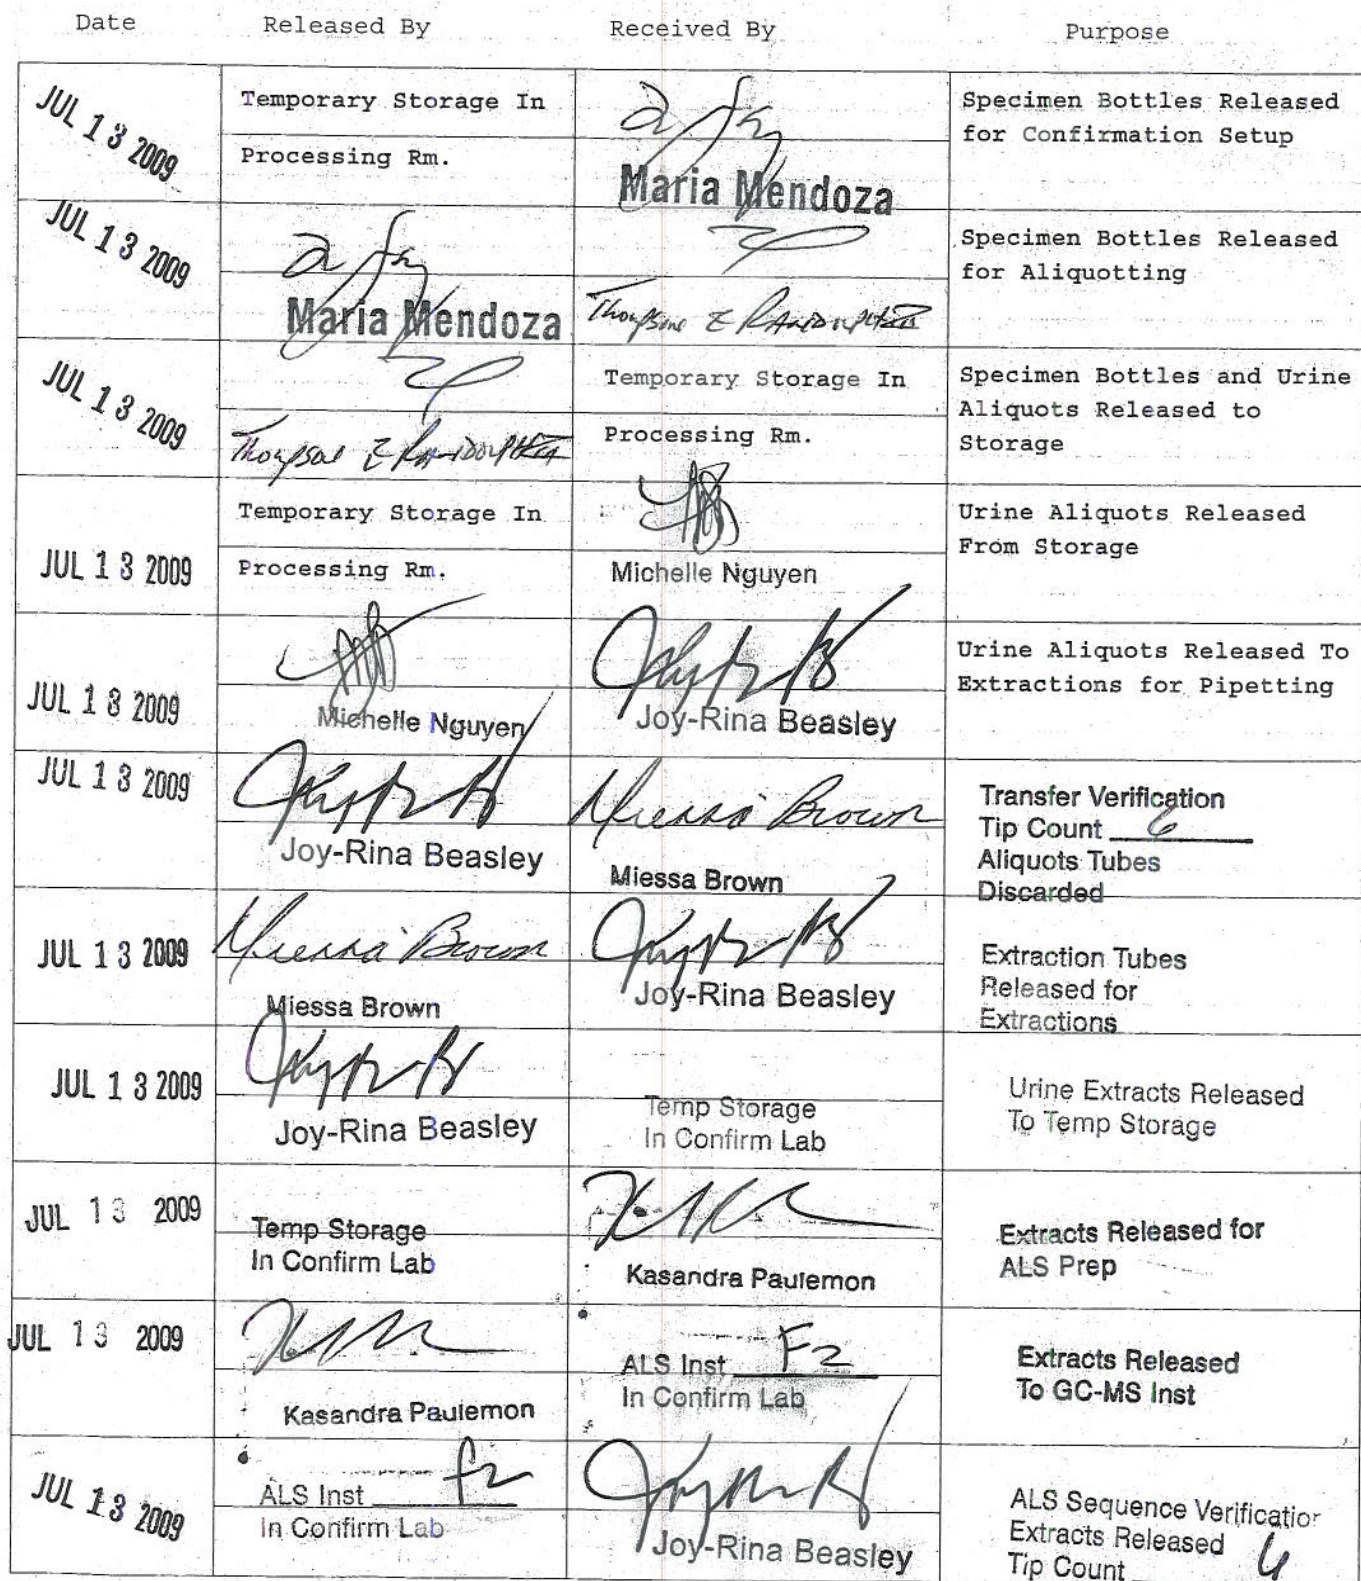 Date Released By Received By Purpose
JUL 13 2009
Temporary Storage In
Processing Rm.
Maria Mendoza
Specimen Bottles Released
for Confirmation Setup
JUL 13 2009
Maria Mendoza
Thompson E
Specimen Bottles Released
for Aliquotting
JUL 13 2009
Thompson E
Temporary Storage In
Processing Rm.
Specimen Bottles and Urine
Aliquots Released to
Storage
JUL 13 2009
Temporary Storage In
Processing Rm.
Michelle Nguyen
Urine Aliquots Released
From Storage
JUL 13 2009
Michelle Nguyen
Joy-Rina Beasley
Urine Aliquots Released To
Extractions for Pipetting
JUL 13 2009
Joy-Rina Beasley
Miessa Brown
Miessa Brown
Transfer Verification
Tip Count 6
Aliquots Tubes
Discarded
JUL 13 2009
Miessa Brown
Miessa Brown
Joy-Rina Beasley
Extraction Tubes
Released for
Extractions
JUL 13 2009
Joy-Rina Beasley
Temp Storage
In Confirm Lab
Urine Extracts Released
To Temp Storage
JUL 13 2009
Temp Storage
In Confirm Lab
Kasandra Paulemon
Extracts Released for
ALS Prep
JUL 13 2009
Kasandra Paulemon
ALS Inst F2
In Confirm Lab
Extracts Released
To GC-MS Inst
JUL 13 2009
ALS Inst F2
In Confirm Lab
Joy-Rina Beasley
ALS Sequence Verification
Extracts Released
Tip Count 6